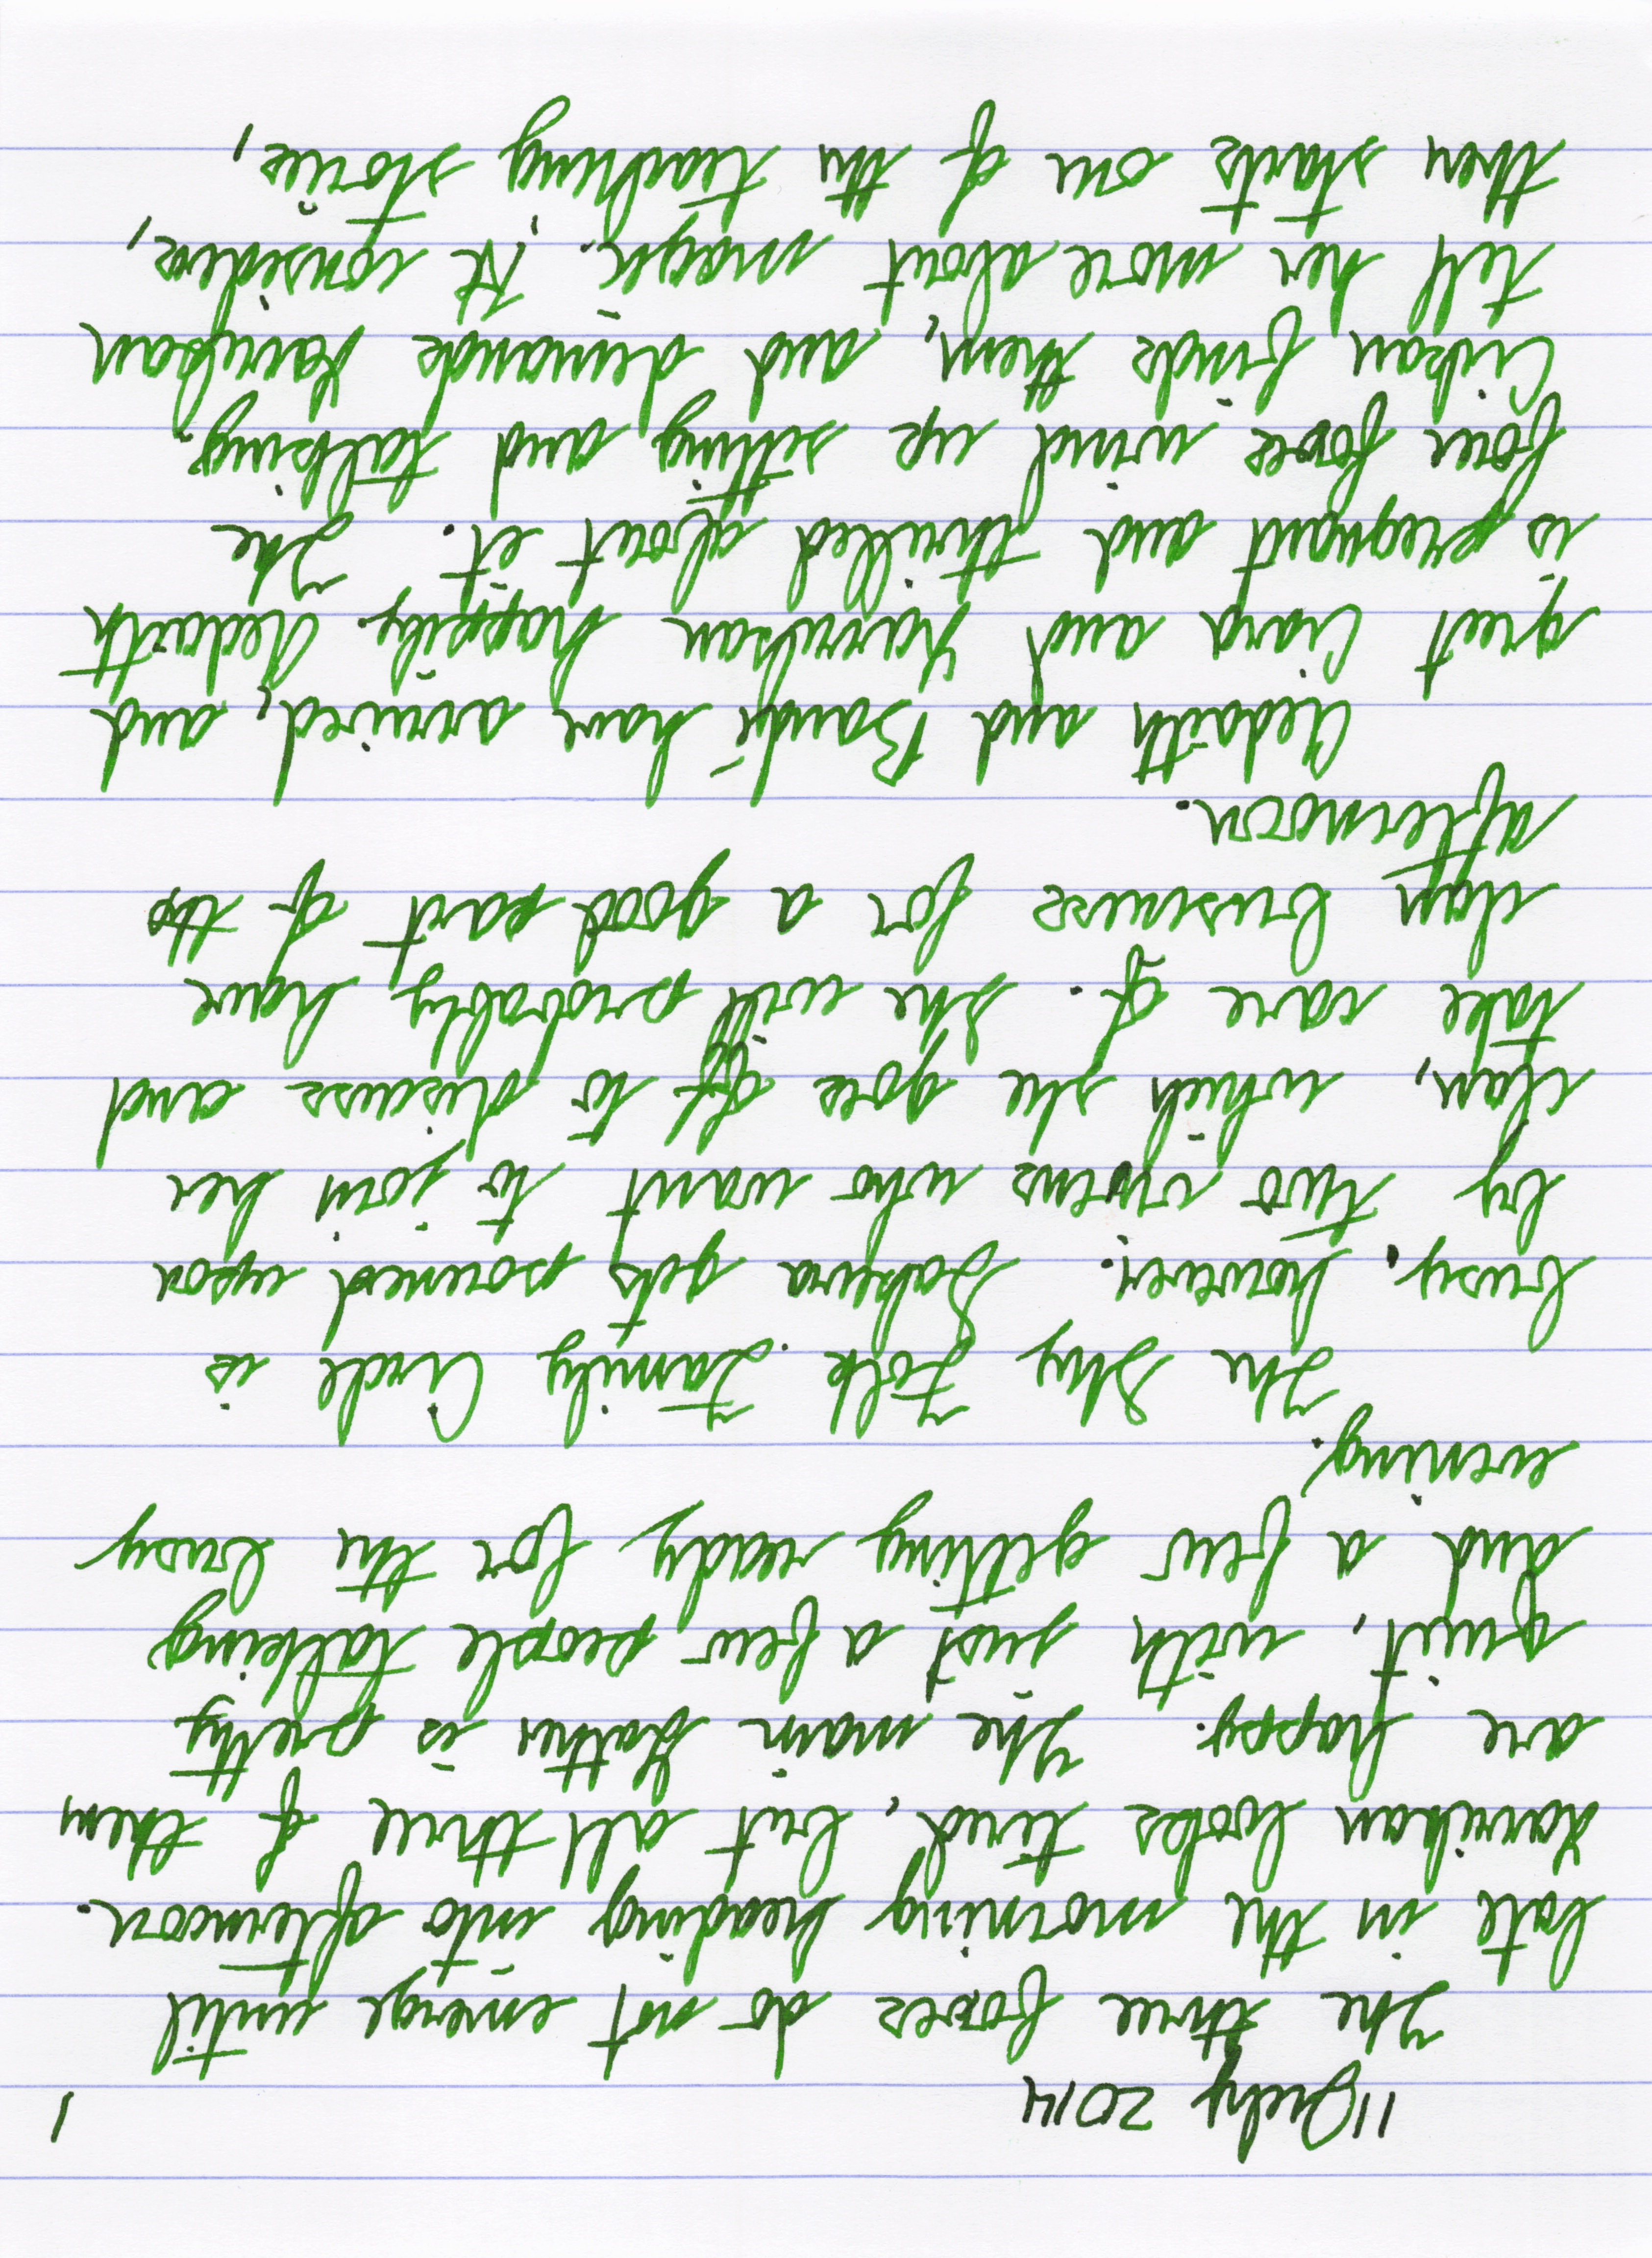 11 July 2014
1
The three foxes do not emerge until
late in the morning heading into afternoon.
Karukan looks tired, but all three of them
are happy. The main Gather is pretty
quiet, with just a few people talking
and a few getting ready for the busy
evening.
The Shy Folk Family Circle is
busy, however. Sakura gets pounced upon
by two who want to join her
clan, which she goes off to discuss and
take care of. She will probably have
clan business for a good part of the
afternoon.
Aedaith and Bandí have arrived, and
greet Ciara and Karukan happily. Aedaith
is pregnant and thrilled about it. The
four foxes wind up sitting and talking.
Cioban finds them, and demands Karukan
tell her more about magic. He considers,
then starts on of the teaching stories,